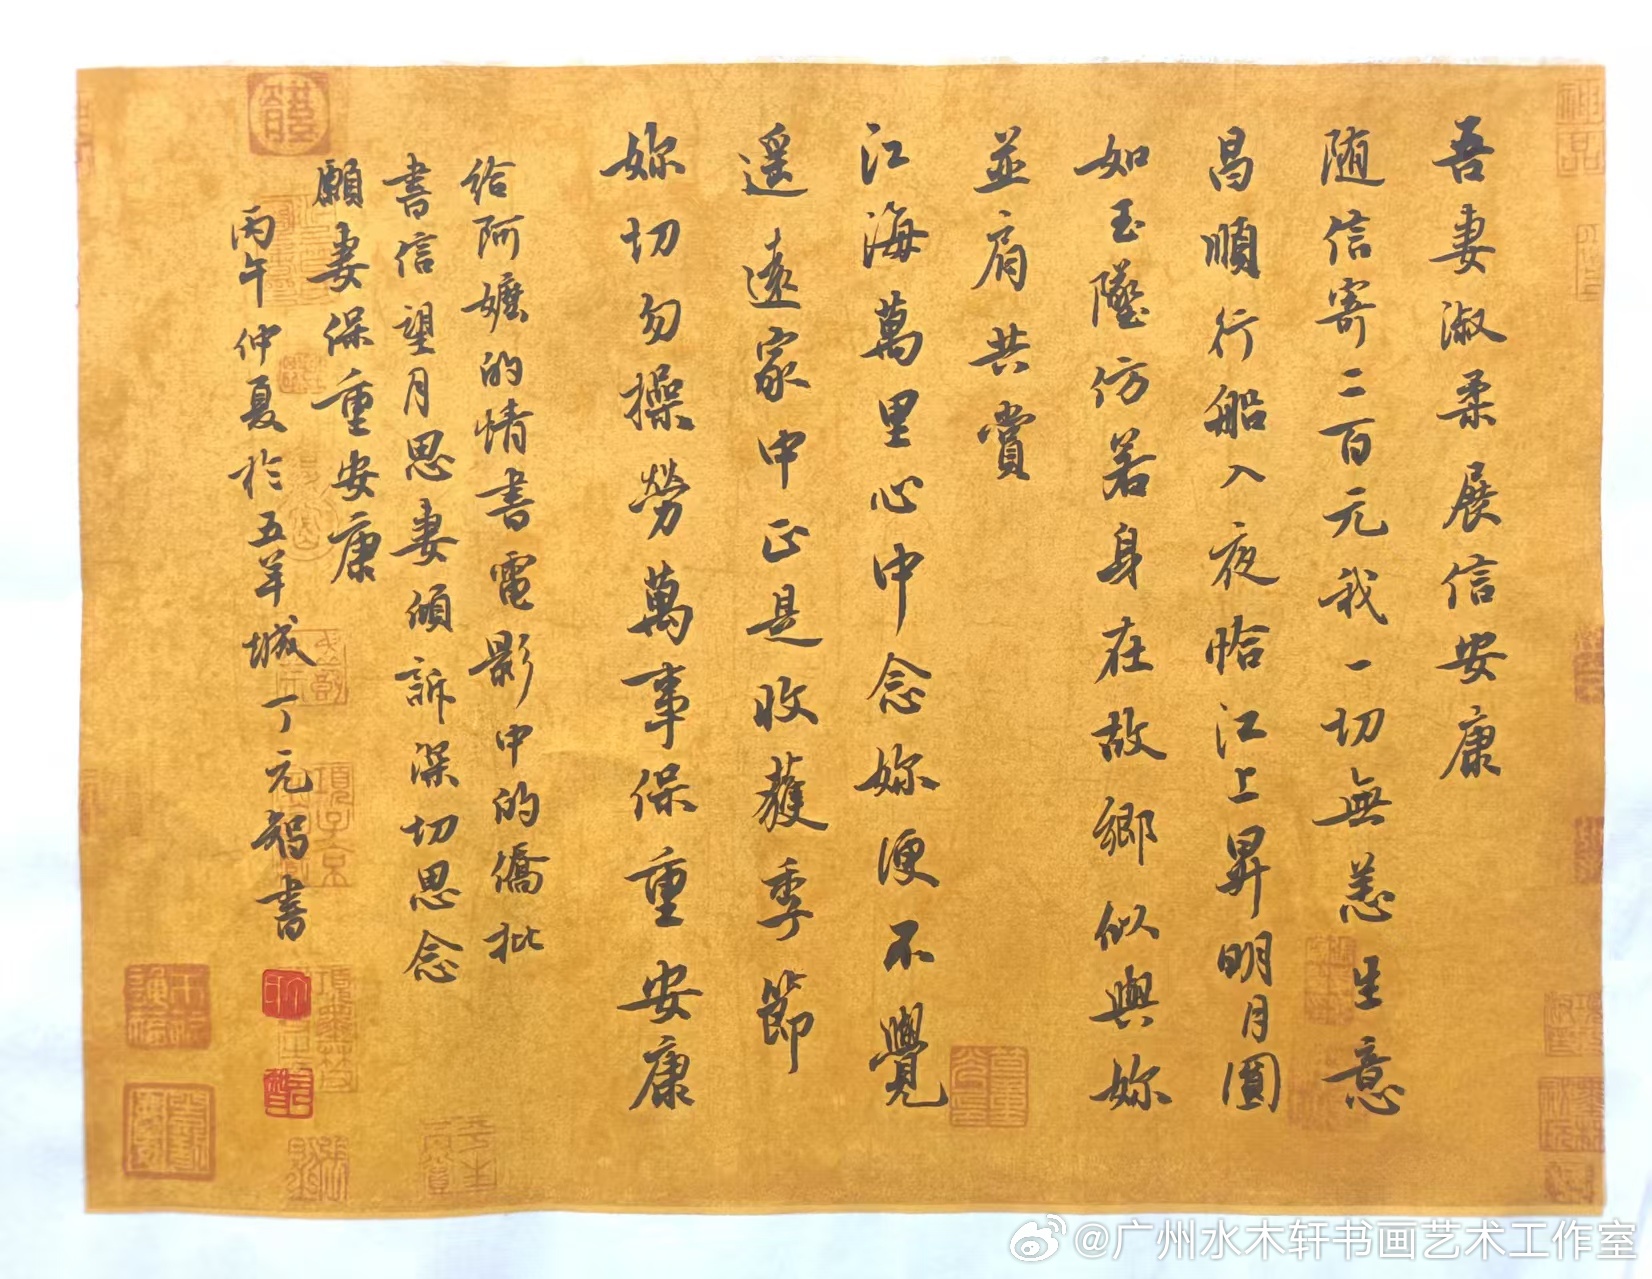 吾妻淑柔展信安康
随信寄二百元我一切無恙生意
昌順行船入夜恰江上昇明月圓
如玉墜仿若身在故鄉似與妳
並肩共賞
江海萬里心中念妳便不覺
遥遠家中正是收穫季節
妳切勿操勞萬事保重安康
给阿嬤的情書電影中的僑批
書信望月思妻傾訴深切思念
願妻保重安康
丙午仲夏於五羊城丁元智書
@广州水木轩书画艺术工作室